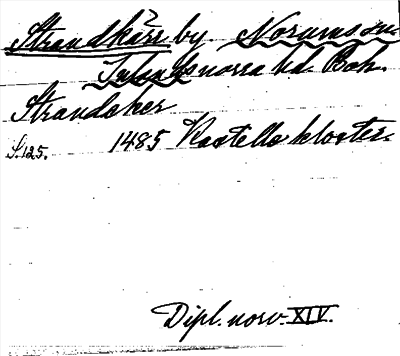 Strandkärr by. Norums sn.
Inlands norra hd. Boh.
Strandaker
S. 125. 1485 Kastelle kloster.
Dipl. norv. XIV.